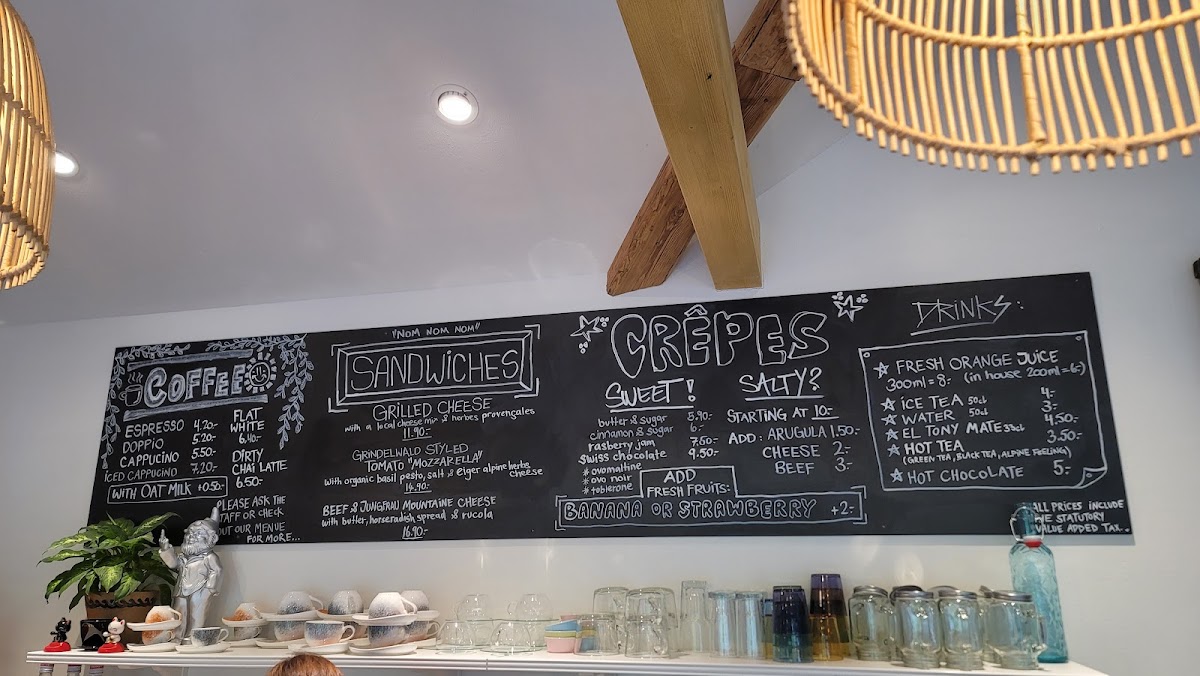 COFFEE
ESPRESSO 4.20.-
DOPPIO 5.20.-
CAPPUCINO 5.50-
ICED CAPPUCINO 7.20.-
FLAT
WHITE
6.40.-
DIRTY
CHAI LATTE
6.50-
WITH OAT MILK +0.50-
PLEASE ASK THE
STAFF OR CHECK
OUT OUR MENUE
FOR MORE...
"NOM NOM NOM"
SANDWICHES
GRILLED CHEESE
with a local cheese mix & herbes provençales
11.90.-
GRINDELWALD STYLED
TOMATO "MOZZARELLA"
with organic basil pesto, salt & eiger alpine herbs cheese
14.90.-
BEEF & JUNGFRAU MOUNTAINE CHEESE
with butter, horseradish spread & rucola
16.90.-
CRÊPES
SWEET!
butter & sugar 5.90.-
cinnamon & sugar 6.-
rasberry jam 7.50-
swiss chocolate 9.50-
* ovomaltine
* ovo noir
* toblerone
SALTY?
STARTING AT 10.-
ADD: ARUGULA 1.50.-
CHEESE 2.-
BEEF 3.-
ADD
FRESH FRUITS:
BANANA OR STRAWBERRY +2.-
DRINKS:
FRESH ORANGE JUICE
300ml = 8.- (in house 200ml = 6-)
ICE TEA 50cl 4.-
WATER 50cl 3.-
EL TONY MATE 33cl 4.50.-
HOT TEA 3.50-
(GREEN TEA, BLACK TEA, ALPINE FEELING)
HOT CHOCOLATE 5.-
ALL PRICES INCLUDE
THE STATUTORY
VALUE ADDED TAX.